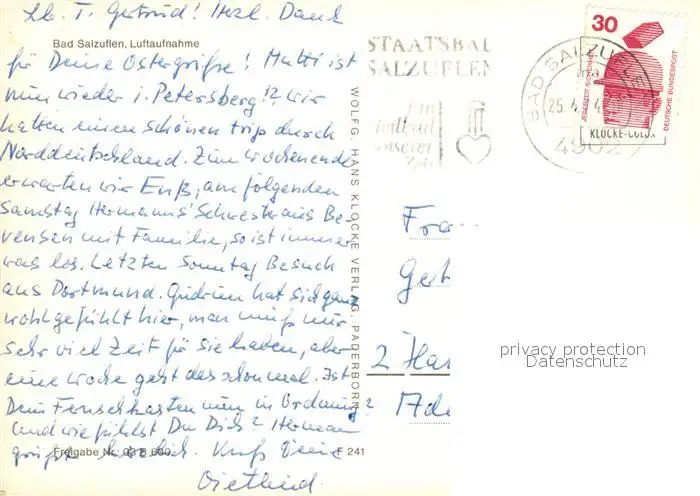 Lb. T. Gertrud! Herzl. Dank
Bad Salzuflen, Luftaufnahme
für Deine Ostergrüße! Mutti ist
nun wieder i. Petersberg!? Wir
hatten einen schönen Trip durch
Norddeutschland. Zum Wochenende
erwarten wir Euß, am folgenden
Samstag Hermanns' Schwester aus Be-
vensen mit Familie, so ist immer
was los. Letzten Sonntag Besuch
aus Dortmund. Gudrun hat sich ganz
wohlgefühlt hier, man muß nur
sehr viel Zeit für sie haben, aber
eine Woche geht das schon mal. Ist
Dein Fernsehkasten nun in Ordnung?
Und wie fühlst Du Dich? Hermann
grüßt herzlich. Kuß Deine
Freigabe Nr. 03 B 600
F 241
Dietlind.
WOLFG. HANS KLOCKE VERLAG, PADERBORN
STAATSBAD
SALZUFLEN
Ein
Heilbad
unserer
Zeit
BAD SALZUFLEN
25. 4.
4902
30
JEDERZEIT SICHERHEIT
DEUTSCHE BUNDESPOST
KLOCKE-COLOR
Fra
Gert
2 Ha
privacy protection
Datenschutz